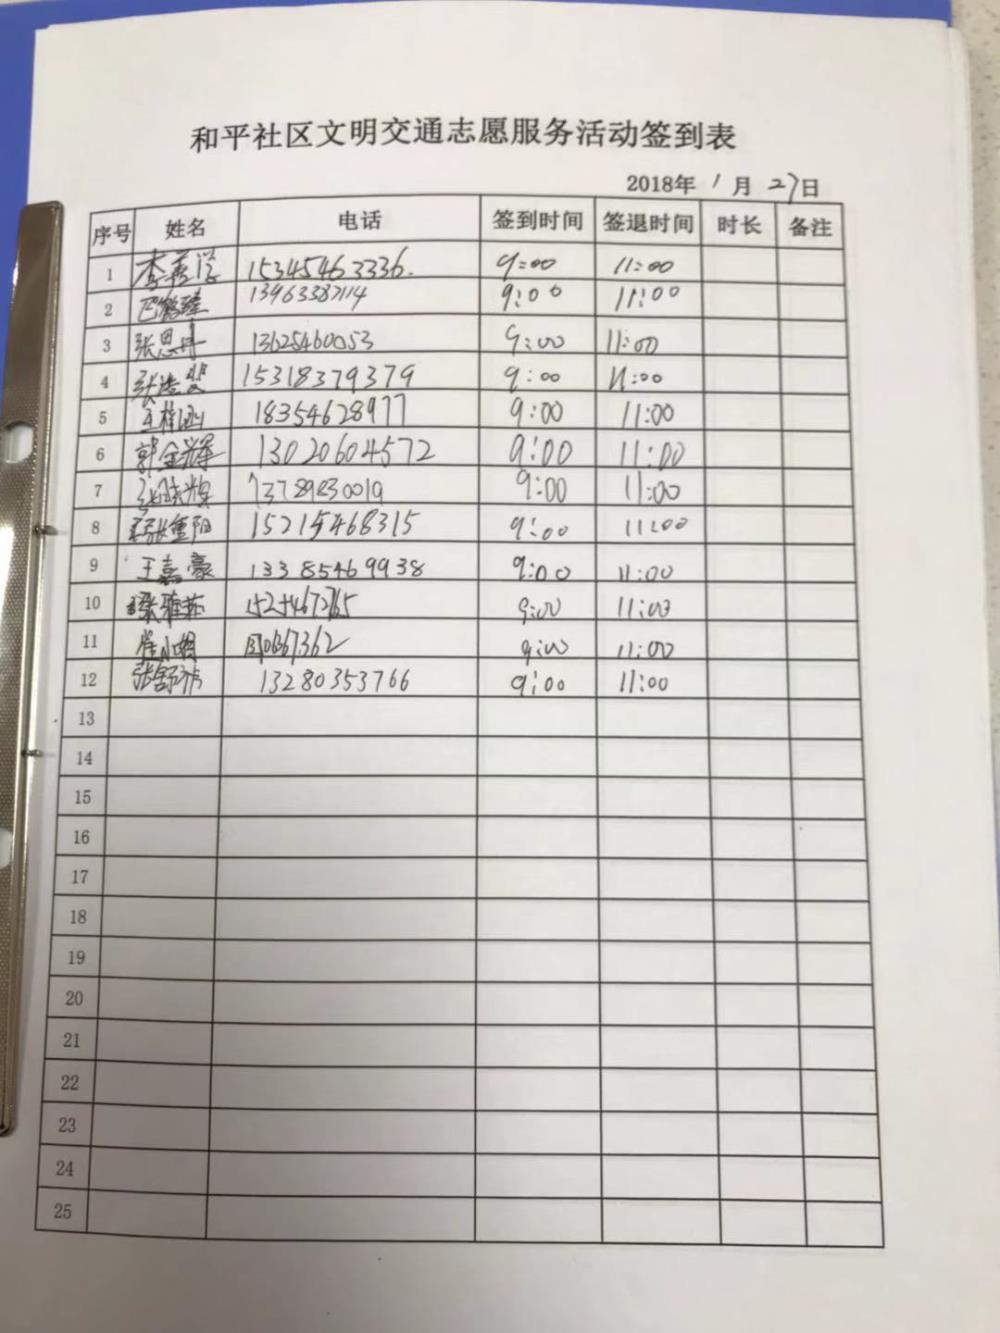 和平社区文明交通志愿服务活动签到表
2018年 1 月 27日
序号 姓名 电话 签到时间 签退时间 时长 备注
1 15345463336. 9:00 11:00
2 13963387114 9:00 11:00
3 张思丹 13625460053 9:00 11:00
4 张浩斐 15318379379 9:00 11:00
5 18354628977 9:00 11:00
6 郭金辉 13020604572 9:00 11:00
7 13789830019 9:00 11:00
8 张重阳 15215468315 9:00 11:00
9 王嘉豪 13385469938 9:00 11:00
10 9:00 11:00
11 9:00 11:00
12 13280353766 9:00 11:00
13
14
15
16
17
18
19
20
21
22
23
24
25